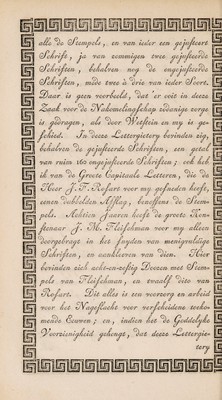 alle de Stempels, en van ieder een gejusteert
Schrift, ja van sommigen twee gejusteerde
Schriften, behalven nog de ongejusteerde
Schriften, mede twee à drie van ieder Soort.
Daar is geen voorbeeld, dat'er ooit in deeze
Zaak voor de Nakomelingschap zodanige zorge
is gedragen, als door Wetstein en my is ge-
schied. In deeze Lettergietery bevinden zig,
behalven de gejusteerde Schriften, een getal
van ruim 160 ongejusteerde Schriften; ook heb
ik van de Groote Capitaale Letteren, die de
Heer J. F. Rosart voor my gesneden heeft,
eenen dubbelden Afslag, beneffens de Stem-
pels. Achtien Jaaren heeft de groote Kon-
stenaar J. M. Fleischman voor my alleen
doorgebragt in het snyden van menigvuldige
Schriften, en aankleven van dien. Hier
bevinden zich acht-en-zestig Doozen met Stem-
pels van Fleischman, en twaalf dito van
Rosart. Dit alles is een voorzorg en arbeid
voor het Nageslacht voor verscheidene toeko-
mende Eeuwen; en, indien het de Goddelyke
Voorzienigheid gehengt, dat deeze Lettergie-
tery